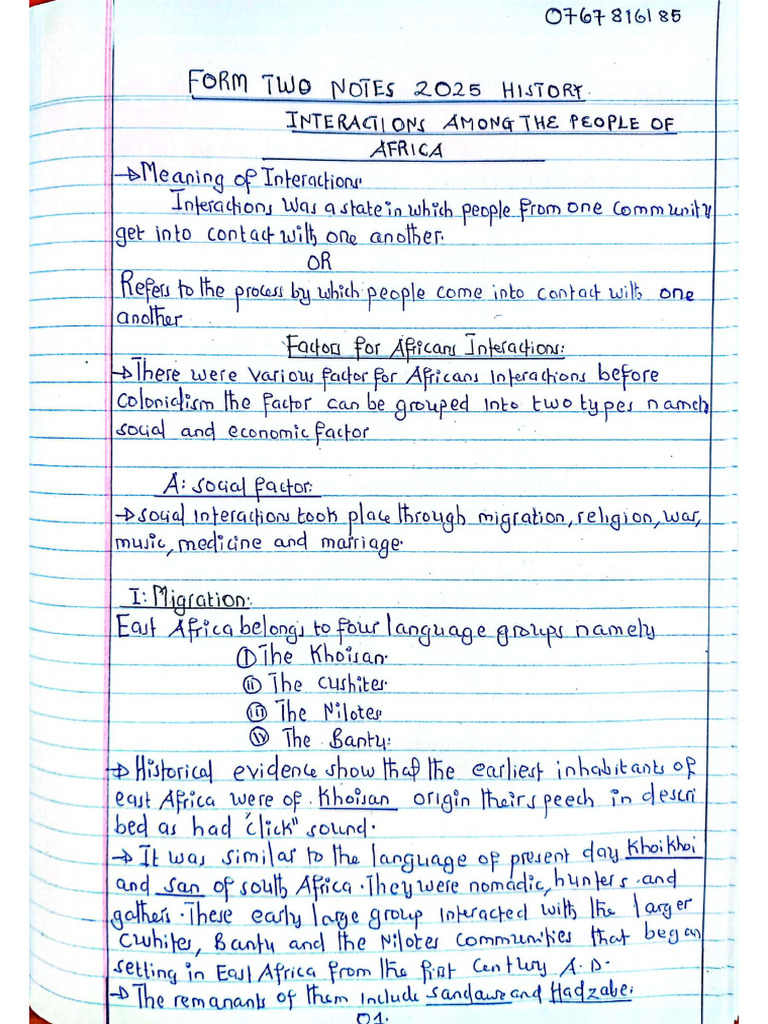 0767816185
FORM TWO NOTES 2025 HISTORY.
INTERACTIONS AMONG THE PEOPLE OF
AFRICA
→ Meaning of Interactions.
Interactions was a state in which people from one community
get into contact with one another.
OR
Refers to the process by which people come into contact with one
another
Factors for Africans Interactions:
→ There were various factor for Africans interactions before
colonialism the factor can be grouped into two types namely
social and economic factor
A: social factor:
→ social interactions took place through migration, religion, war,
music, medicine and marriage.
I: Migration:
East Africa belongs to four language groups namely
(i) The Khoisan.
(ii) The Cushites.
(iii) The Nilotes.
(iv) The Bantu:
→ Historical evidence show that the earliest inhabitants of
east Africa were of Khoisan origin their speech in descri
bed as had "click" sound.
→ It was similar to the language of present day Khoikhoi
and san of south Africa. They were nomadic, hunters and
gathers. These early large group interacted with the larger
Cwhites, Bantu and the Nilotes communities that began
setting in East Africa from the first century A.D.
→ The remanants of them include Sandawe and Hadzabe:
01.